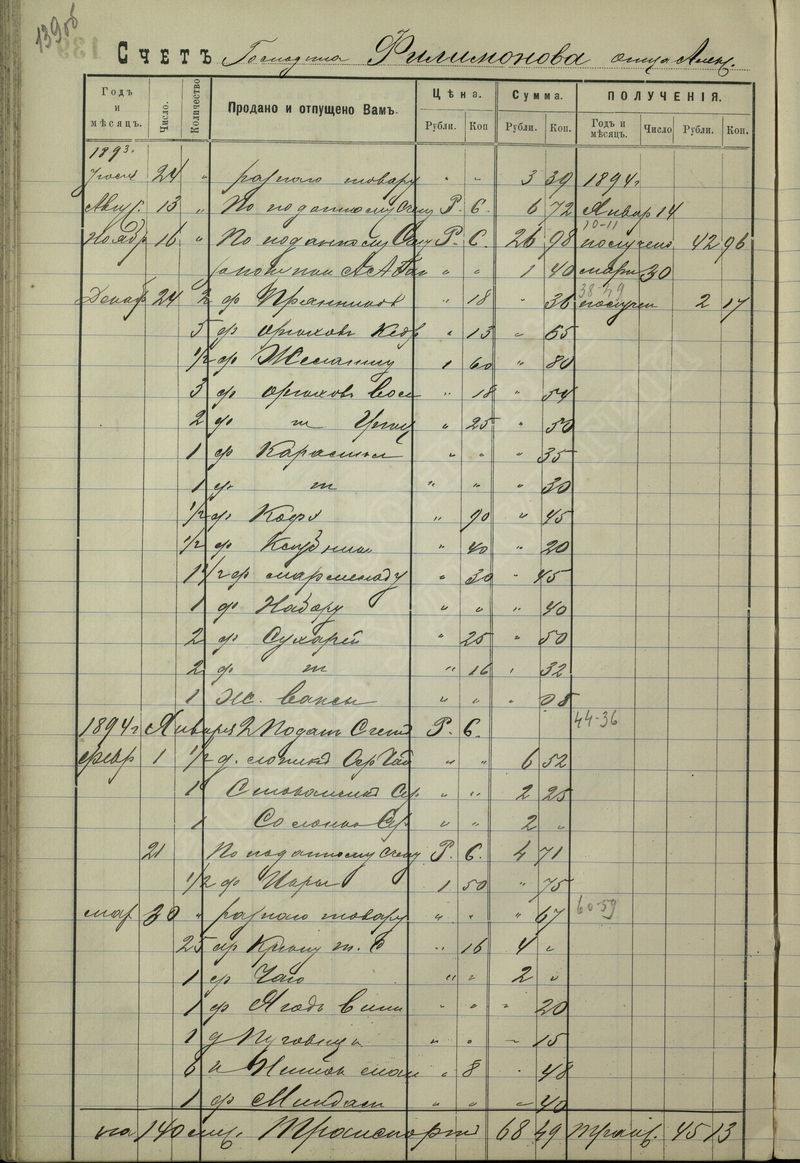 139об
Счетъ Господина Филимонова отца Алекс.
Годъ и мѣсяцъ. Число. Количество Продано и отпущено Вамъ. Цѣна. Сумма. ПОЛУЧЕНІЯ.
Рубли. Коп Рубли. Коп. Годъ и мѣсяцъ. Число Рубли. Коп.
1893.
24 " разнаго товару " " 3 39 1894г
Авг. 13 " По поданному Счету Р. С. 6 72 Январ 14
10-11
Ноябр 16 " По поданному Счету Р. С. 26 98 получено 42 96
А А " " 1 40 март 30
38-49
Декаб 24 2 ф Пряников " 18 " 36 получен 2 17
5 ф орѣховъ Кедр " 13 " 65
1/2 ф Жемашку 1 60 " 80
3 ф орѣховъ Вол " 18 " 54
2 ф т " 25 " 50
1 ф Карамели " " " 35
1 ф т " " " 30
1/2 ф Кофе " 90 " 45
1/2 ф " 40 " 20
1 1/2 ф мармеладу " 30 " 45
1 ф Набору " " " 40
2 ф Сухарей " 25 " 50
2 ф т " 16 " 32
1 ж. Ваксы " " " 08
1894г Января 2 Подат Счетъ Р. С. 44-36
февр 1 1/2 д. Сер Чай " " 6 52
1 Столовыхъ Сер " " 2 25
1 Солонка Сер " " 2 "
21 По поданному счету Р. С. 4 71
1/2 ф Икры 1 50 " 75
мар 30 " разнаго товару " " " 67 60-59
25 ар т. " 16 4 "
1 ф Чаю " " 2 "
1 ф Ягодъ Вини " " " 20
1 д Пуговицъ " " " 15
6 " 8 " 48
1 ф Миндал " " " 40
на 140 стр. Транспортъ 68 49 Транс. 45 13